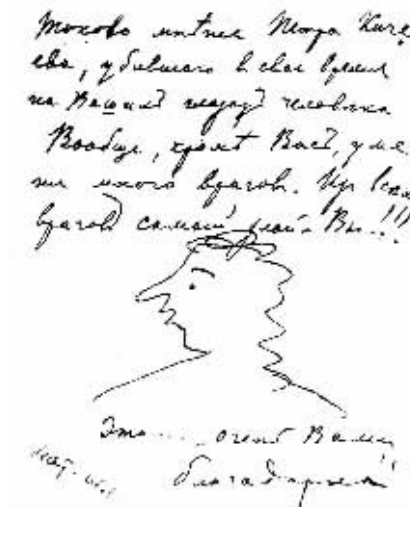 Таково мнѣніе Петра Киче
ева, убившаго въ свое время
на Вашихъ человѣка
Вообще, кромѣ Васъ, у ме
ня много враговъ. Изъ всѣхъ
враговъ самый злой - Вы...!!!
Это.... очень Вамъ
благодаренъ!!